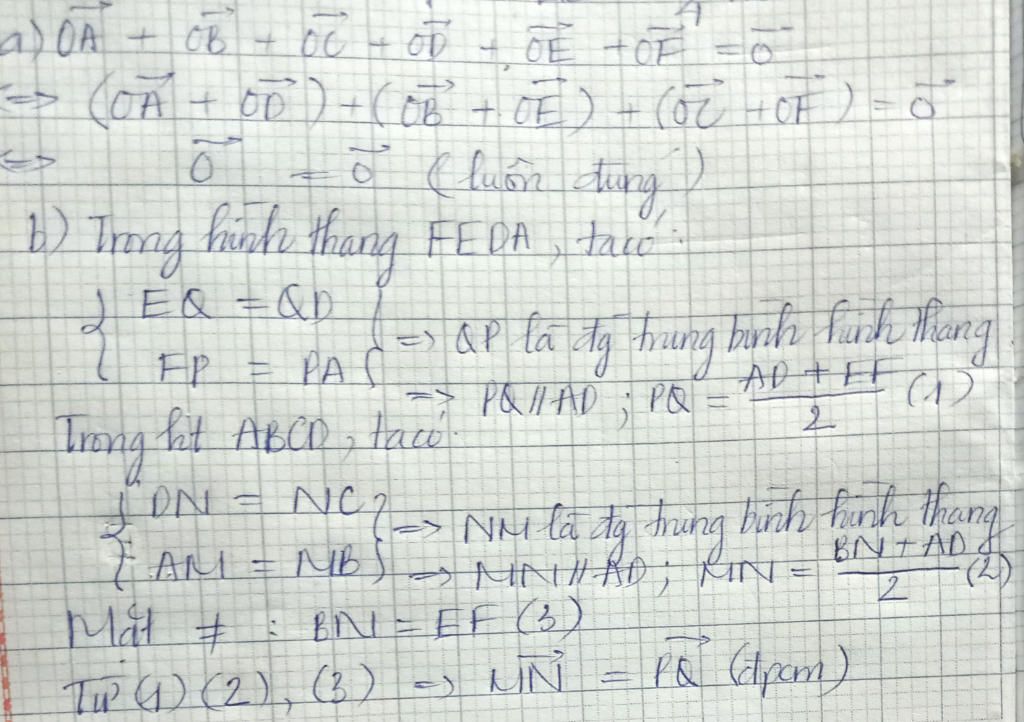 a) OA + OB + OC + OD + OE + OF = O
<=> (OA + OD) + (OB + OE) + (OC + OF) = O
<=> O = O (luôn đúng)
b) Trong hình thang FEDA, ta có:
{ EQ = QD
FP = PA } => QP là đg trung bình hình thang
=> PQ // AD ; PQ = (AD + EF)/2 (1)
Trong ht ABCD, ta có:
{ DN = NC
AM = MB } => NM là đg trung bình hình thang
=> MN // AD ; MN = (BN + AD)/2 (2)
Mặt ≠ : BN = EF (3)
Từ (1) (2), (3) => MN = PQ (đpcm)